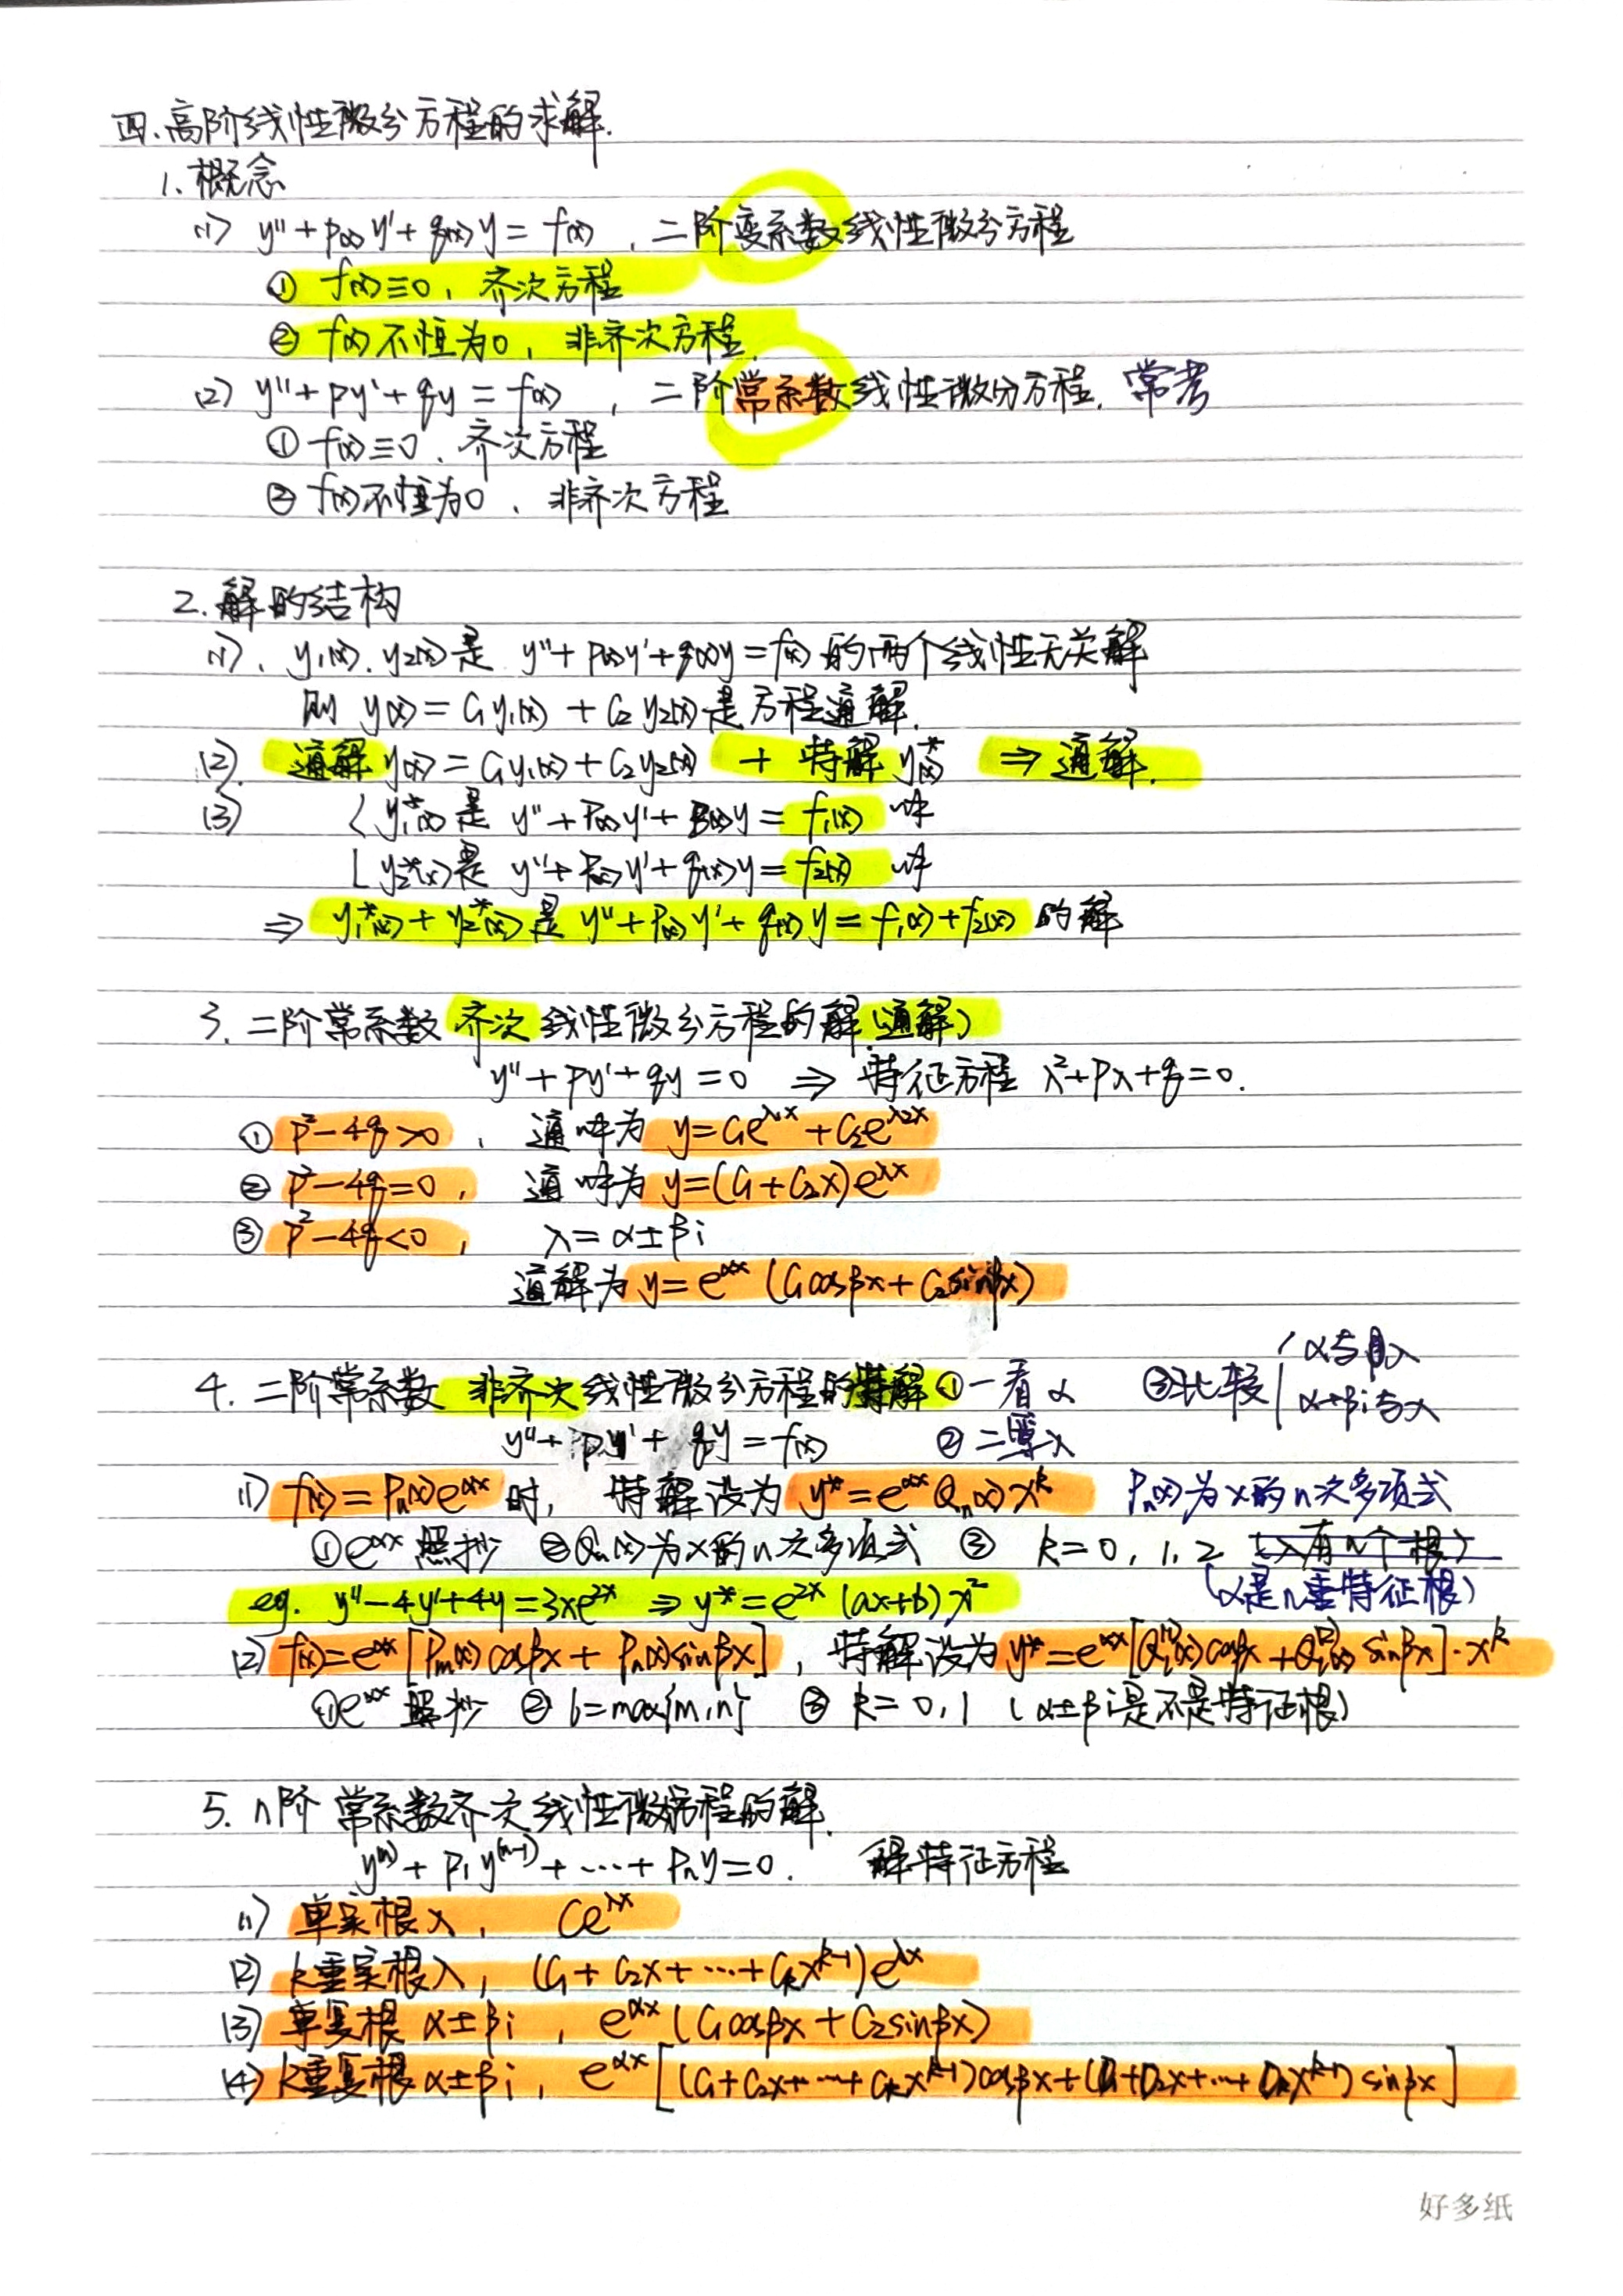 四.高阶线性微分方程的求解.
1.概念
(1) y''+p(x)y'+q(x)y=f(x),二阶变系数线性微分方程
① f(x)≡0,齐次方程
② f(x)不恒为0,非齐次方程.
(2) y''+py'+qy=f(x),二阶常系数线性微分方程.常考
① f(x)≡0.齐次方程
② f(x)不恒为0.非齐次方程
2.解的结构
(1). y₁(x).y₂(x)是 y''+p(x)y'+q(x)y=f(x)的两个线性无关解
则 y(x)=C₁y₁(x)+C₂y₂(x)是方程通解.
(2). 通解y(x)=C₁y₁(x)+C₂y₂(x) + 特解y*(x) ⇒通解.
(3) { y₁*(x)是 y''+p(x)y'+q(x)y=f₁(x) 解
y₂*(x)是 y''+p(x)y'+q(x)y=f₂(x) 解
⇒ y₁*(x)+y₂*(x)是 y''+p(x)y'+q(x)y=f₁(x)+f₂(x) 的解
3.二阶常系数齐次线性微分方程的解(通解)
y''+py'+qy=0 ⇒ 特征方程 λ²+pλ+q=0.
① p²-4q>0, 通解为 y=C₁e^{λ₁x}+C₂e^{λ₂x}
② p²-4q=0, 通解为 y=(C₁+C₂x)e^{λx}
③ p²-4q<0, λ=α±βi
通解为 y=e^{αx}(C₁cosβx+C₂sinβx)
4.二阶常系数 非齐次线性微分方程的特解 ①一看α ③比较{α与λ
α+βi与λ
y''+py'+qy=f(x) ②二算λ
(1) f(x)=Pₙ(x)e^{αx}时, 特解设为 y*=e^{αx}Qₙ(x)x^k Pₙ(x)为x的n次多项式
①e^{αx}照抄 ②Qₙ(x)为x的n次多项式 ③ k=0,1,2 (λ有n个根)
(α是n重特征根)
eg. y''-4y'+4y=3xe^{2x} ⇒ y*=e^{2x}(ax+b)x²
(2) f(x)=e^{αx}[Pₘ(x)cosβx+Pₙ(x)sinβx],特解设为 y*=e^{αx}[Q_l^{(1)}(x)cosβx+Q_l^{(2)}(x)sinβx]·x^k
①e^{αx}照抄 ② l=max{m,n} ③ k=0,1 (α±βi是不是特征根)
5. n阶常系数齐次线性微分方程的解.
y^{(n)}+p₁y^{(n-1)}+···+pₙy=0. 解特征方程
(1) 单实根λ, Ce^{λx}
(2) k重实根λ, (C₁+C₂x+···+Cₖx^{k-1})e^{λx}
(3) 单复根α±βi, e^{αx}(C₁cosβx+C₂sinβx)
(4) k重复根α±βi, e^{αx}[(C₁+C₂x+···+Cₖx^{k-1})cosβx+(D₁+D₂x+···+Dₖx^{k-1})sinβx]
好多纸